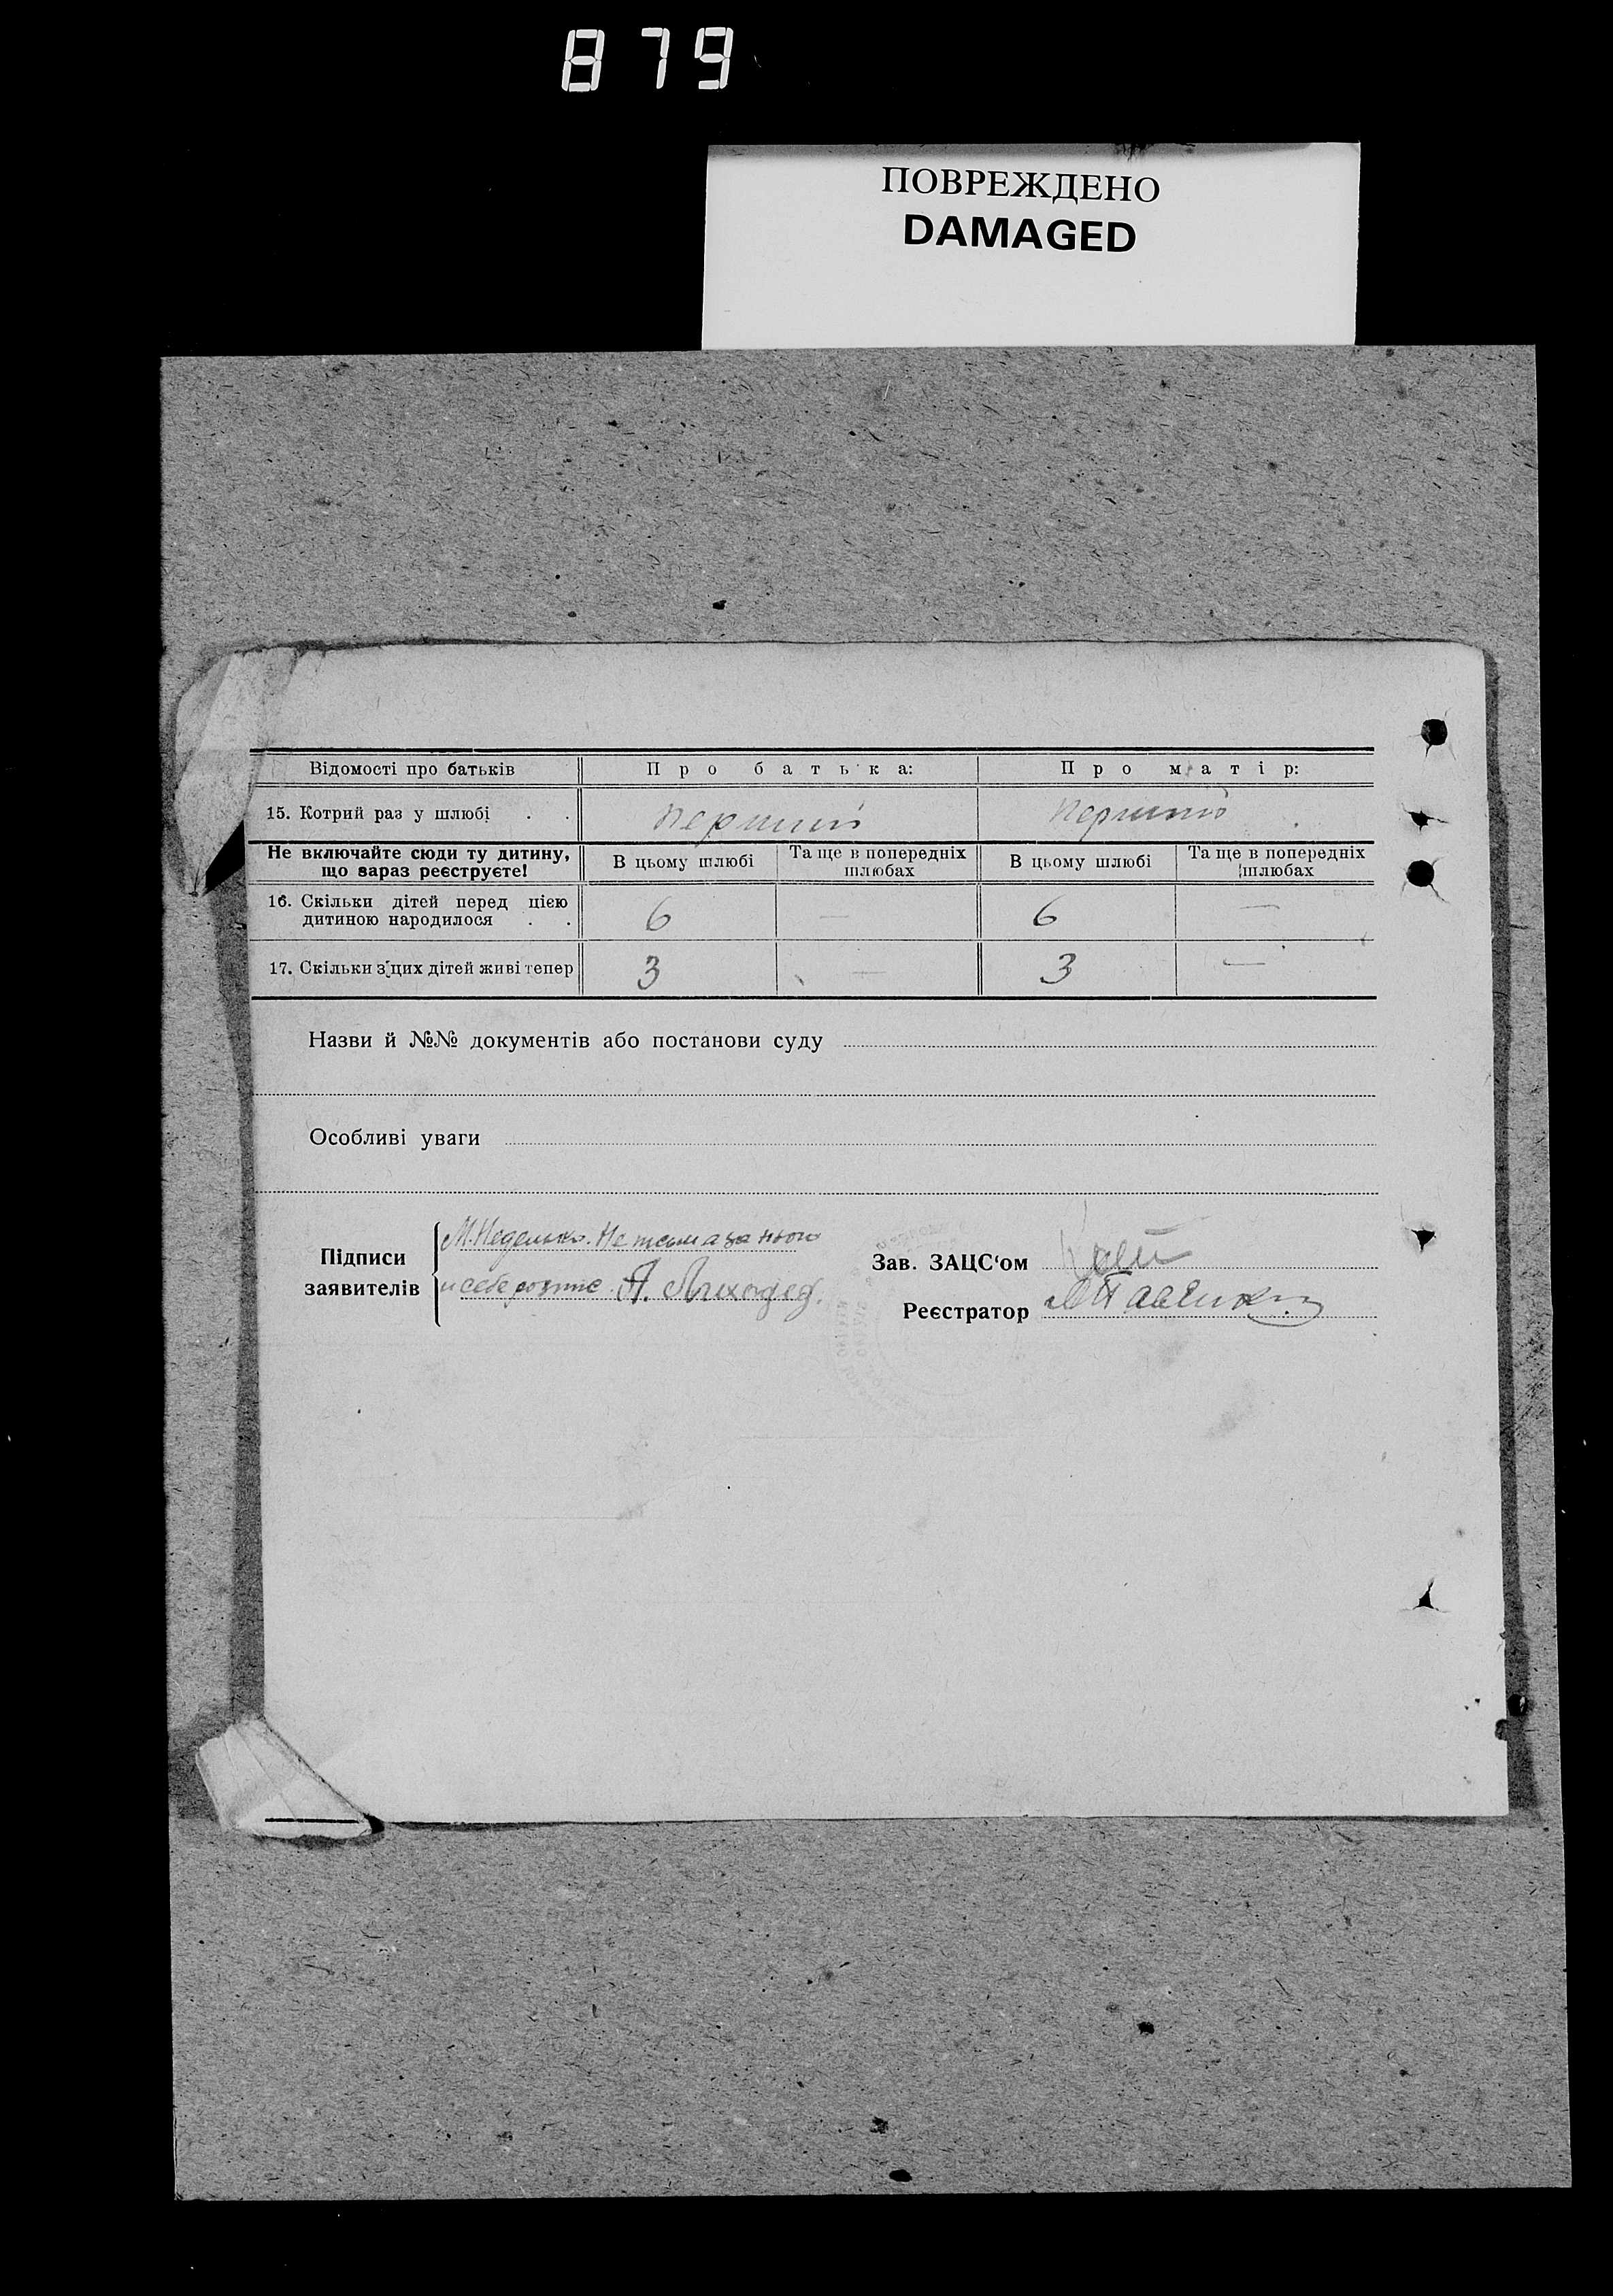 879
ПОВРЕЖДЕНО
DAMAGED
Відомості про батьків Про батька: Про матір:
15. Котрий раз у шлюбі . . перший перший
Не включайте сюди ту дитину, що зараз реєструєте! В цьому шлюбі Та ще в попередніх шлюбах В цьому шлюбі Та ще в попередніх шлюбах
16. Скільки дітей перед цією дитиною народилося . . 6 — 6 —
17. Скільки з цих дітей живі тепер 3 — 3 —
Назви й №№ документів або постанови суду
Особливі уваги
Підписи заявителів
М. Неделько. Неписьмена за нього
и себе розпис. А. Лиходед.
Зав. ЗАЦС‘ом
Реєстратор